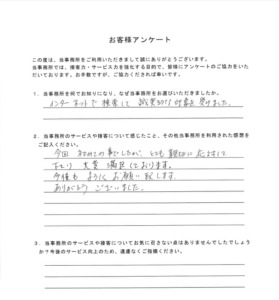 お客様アンケート
この度は、当事務所をご利用いただきまして誠にありがとうございます。
当事務所では、接客力・サービス力を強化する目的で、皆様にアンケートのご協力をいた
だいております。お手数ですが、ご協力くだされば幸いです。
1．当事務所を何でお知りになり、なぜ当事務所をお選びいただきましたか。
インターネットで検索して 誠実そうな 印象を 受けました。
2．当事務所のサービスや接客について感じたこと、その他当事務所を利用された感想を
ご記入ください。
今回 初めての事でしたが、とても 親切に 応対して
下さり 大変 満足しております。
今後も よろしく お願い 致します。
ありがとう ございました。
3．当事務所のサービスや接客についてお気に召さない点はありませんでしたでしょう
か？今後のサービス向上のため、遠慮なくご指摘ください。